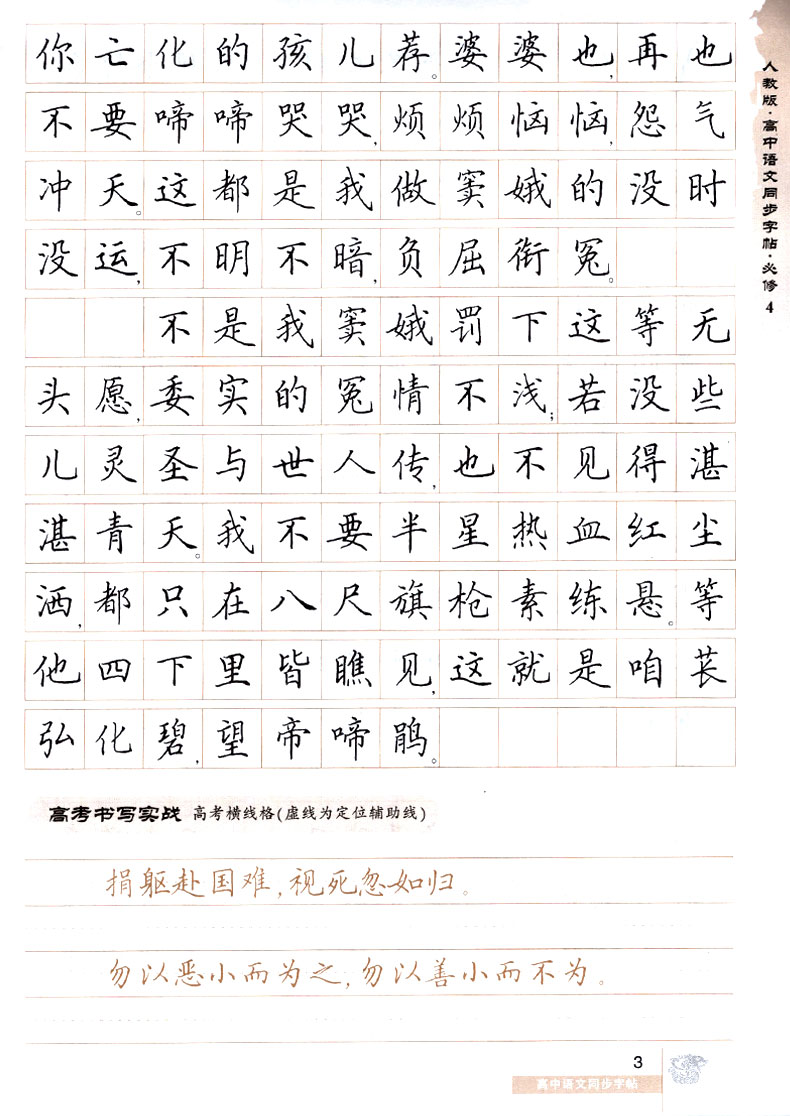 你亡化的孩儿荐。婆婆也,再也
不要啼啼哭哭,烦烦恼恼,怨气
冲天。这都是我做窦娥的没时
没运,不明不暗,负屈衔冤。
不是我窦娥罚下这等无
头愿,委实的冤情不浅;若没些
儿灵圣与世人传,也不见得湛
湛青天。我不要半星热血红尘
洒,都只在八尺旗枪素练悬。等
他四下里皆瞧见,这就是咱苌
弘化碧,望帝啼鹃。
高考书写实战 高考横线格(虚线为定位辅助线)
捐躯赴国难,视死忽如归。
勿以恶小而为之,勿以善小而不为。
人教版·高中语文同步字帖·必修4
3
高中语文同步字帖